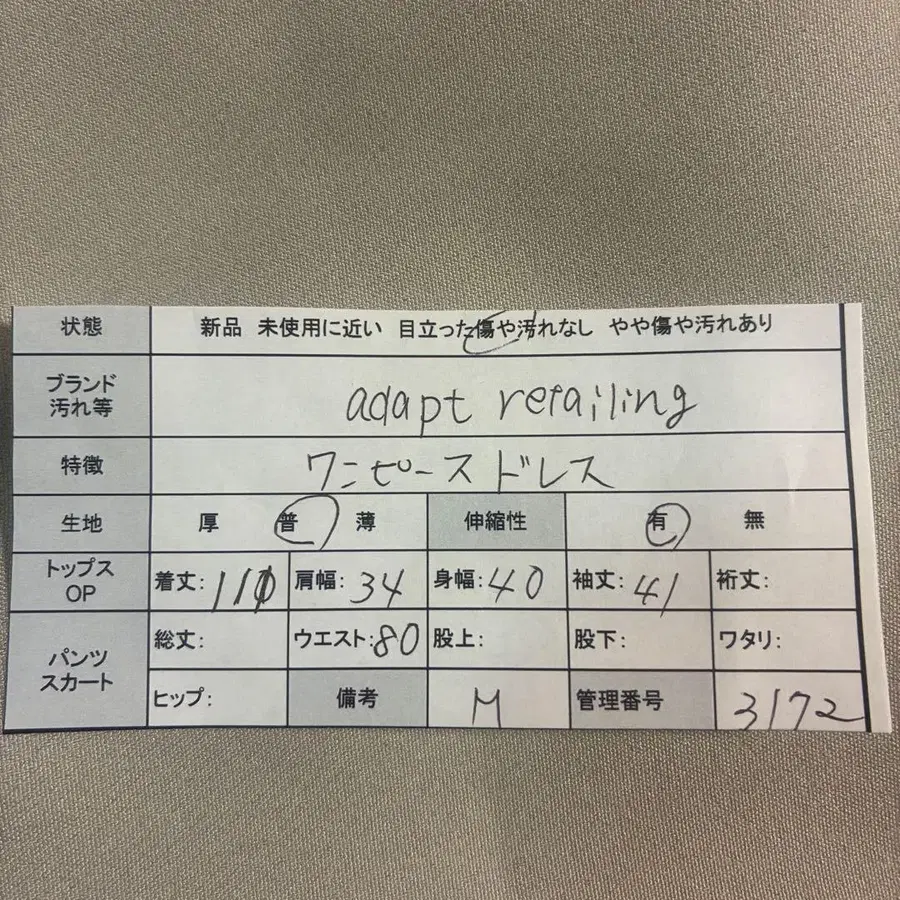 状態 新品 未使用に近い 目立った傷や汚れなし やや傷や汚れあり
ブランド
汚れ等
adapt retailing
特徴 ワンピースドレス
生地 厚 普 薄 伸縮性 有 無
トップス
OP
着丈: 110 肩幅: 34 身幅: 40 袖丈: 41 裄丈:
パンツ
スカート
総丈: ウエスト: 80 股上: 股下: ワタリ:
ヒップ: 備考 M 管理番号 3172